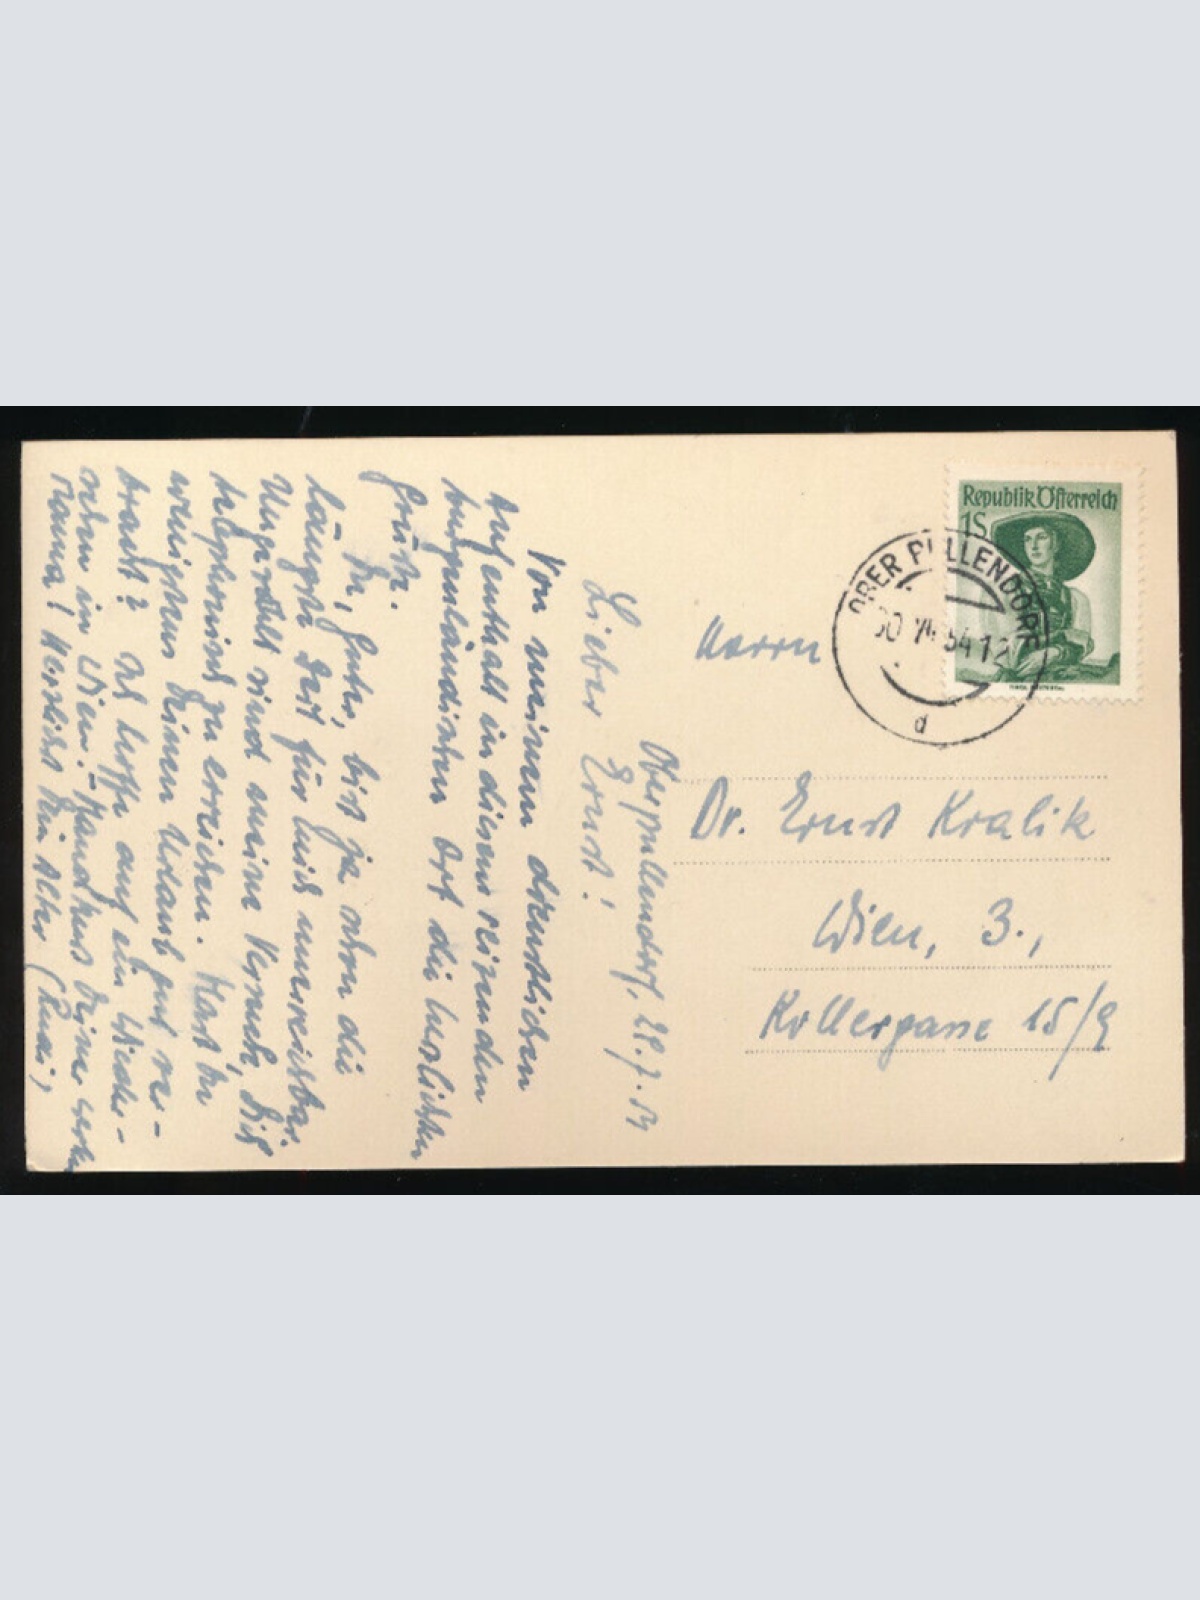 Oberpullendorf, 29.7.54
Lieber Ernst!
Von meinem dienstlichen
Aufenthalt in diesem reizenden
burgenländischen Ort die herzlichsten
Grüße.
Du, Guter, bist ja schon die
längste Zeit für mich unerreichbar.
Ungezählt sind meine Versuche, Dich
telephonisch zu erreichen. Hast Du
wenigstens Deinen Urlaub gut ver-
bracht? Ich hoffe auf ein Wieder-
sehen in Wien. Handkuss Deiner werten
Mama! Herzlichst Dein alter
Republik Österreich
1S
OBER PULLENDORF
30. 54 12
d
Herrn
Dr. Ernst Kralik
Wien, 3.,
Kollergasse 15/9